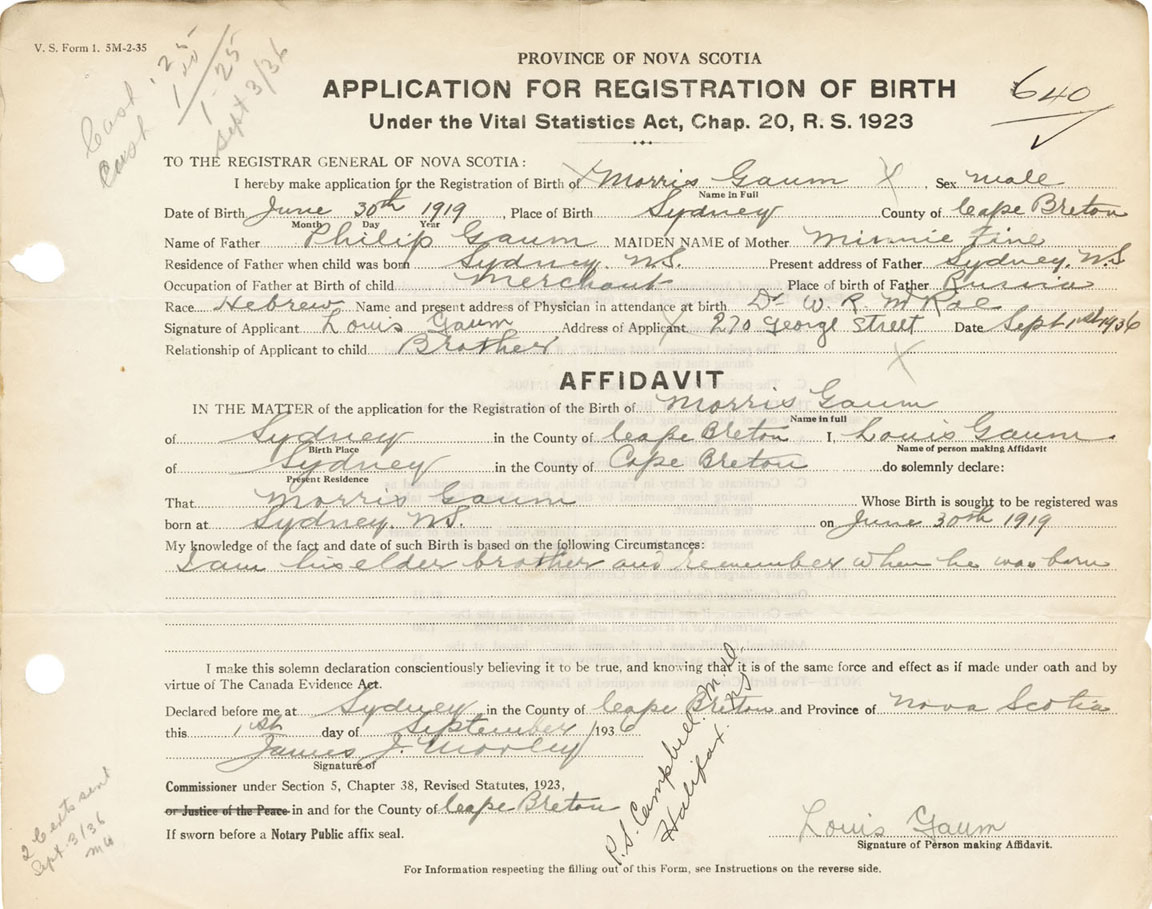 V. S. Form 1. 5M-2-35
PROVINCE OF NOVA SCOTIA
APPLICATION FOR REGISTRATION OF BIRTH
Under the Vital Statistics Act, Chap. 20, R. S. 1923
640
1-25
Sept 3/36
TO THE REGISTRAR GENERAL OF NOVA SCOTIA:
I hereby make application for the Registration of Birth of Morris Gaum, Sex male
Name in Full
Date of Birth June 30th 1919, Place of Birth Sydney County of Cape Breton
Month Day Year
Name of Father Philip Gaum MAIDEN NAME of Mother Minnie Fine
Residence of Father when child was born Sydney. N.S. Present address of Father Sydney. N.S
Occupation of Father at Birth of child Merchant Place of birth of Father Russia
Race Hebrew Name and present address of Physician in attendance at birth Dr W. R. McRae
Signature of Applicant Louis Gaum Address of Applicant 270 George Street Date Sept 1st 1936
Relationship of Applicant to child Brother
AFFIDAVIT
IN THE MATTER of the application for the Registration of the Birth of Morris Gaum
Name in full
of Sydney in the County of Cape Breton I, Louis Gaum.
Birth Place Name of person making Affidavit
of Sydney in the County of Cape Breton do solemnly declare:
Present Residence
That Morris Gaum Whose Birth is sought to be registered was
born at Sydney. N.S. on June 30th 1919
My knowledge of the fact and date of such Birth is based on the following Circumstances:
I am his elder brother and remember when he was born
I make this solemn declaration conscientiously believing it to be true, and knowing that it is of the same force and effect as if made under oath and by
virtue of The Canada Evidence Act.
Declared before me at Sydney in the County of Cape Breton and Province of Nova Scotia
this 1st day of September 1936
James J. Morley
Signature of
Commissioner under Section 5, Chapter 38, Revised Statutes, 1923,
or Justice of the Peace in and for the County of Cape Breton
If sworn before a Notary Public affix seal.
P.S. Campbell. M.D.
Halifax. NS
Louis Gaum
Signature of Person making Affidavit.
2 Certs sent
Sept. 3/36
For Information respecting the filling out of this Form, see Instructions on the reverse side.